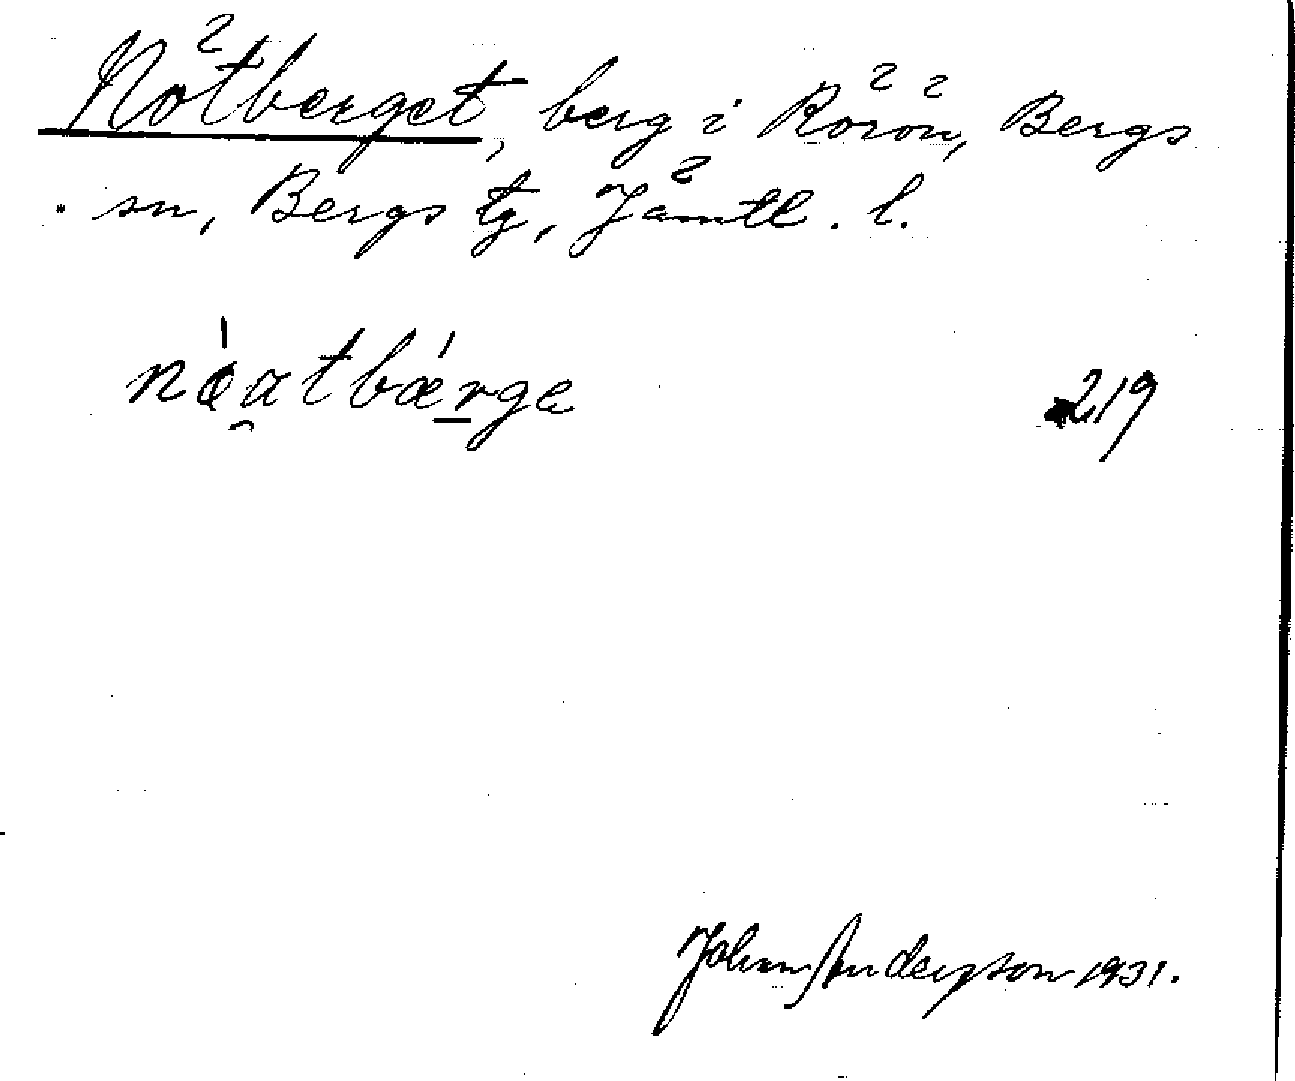 Nötberget, berg i Rörön, Bergs
sn, Bergs tg, Jämtl. l.
219
Johan Anderson 1931.